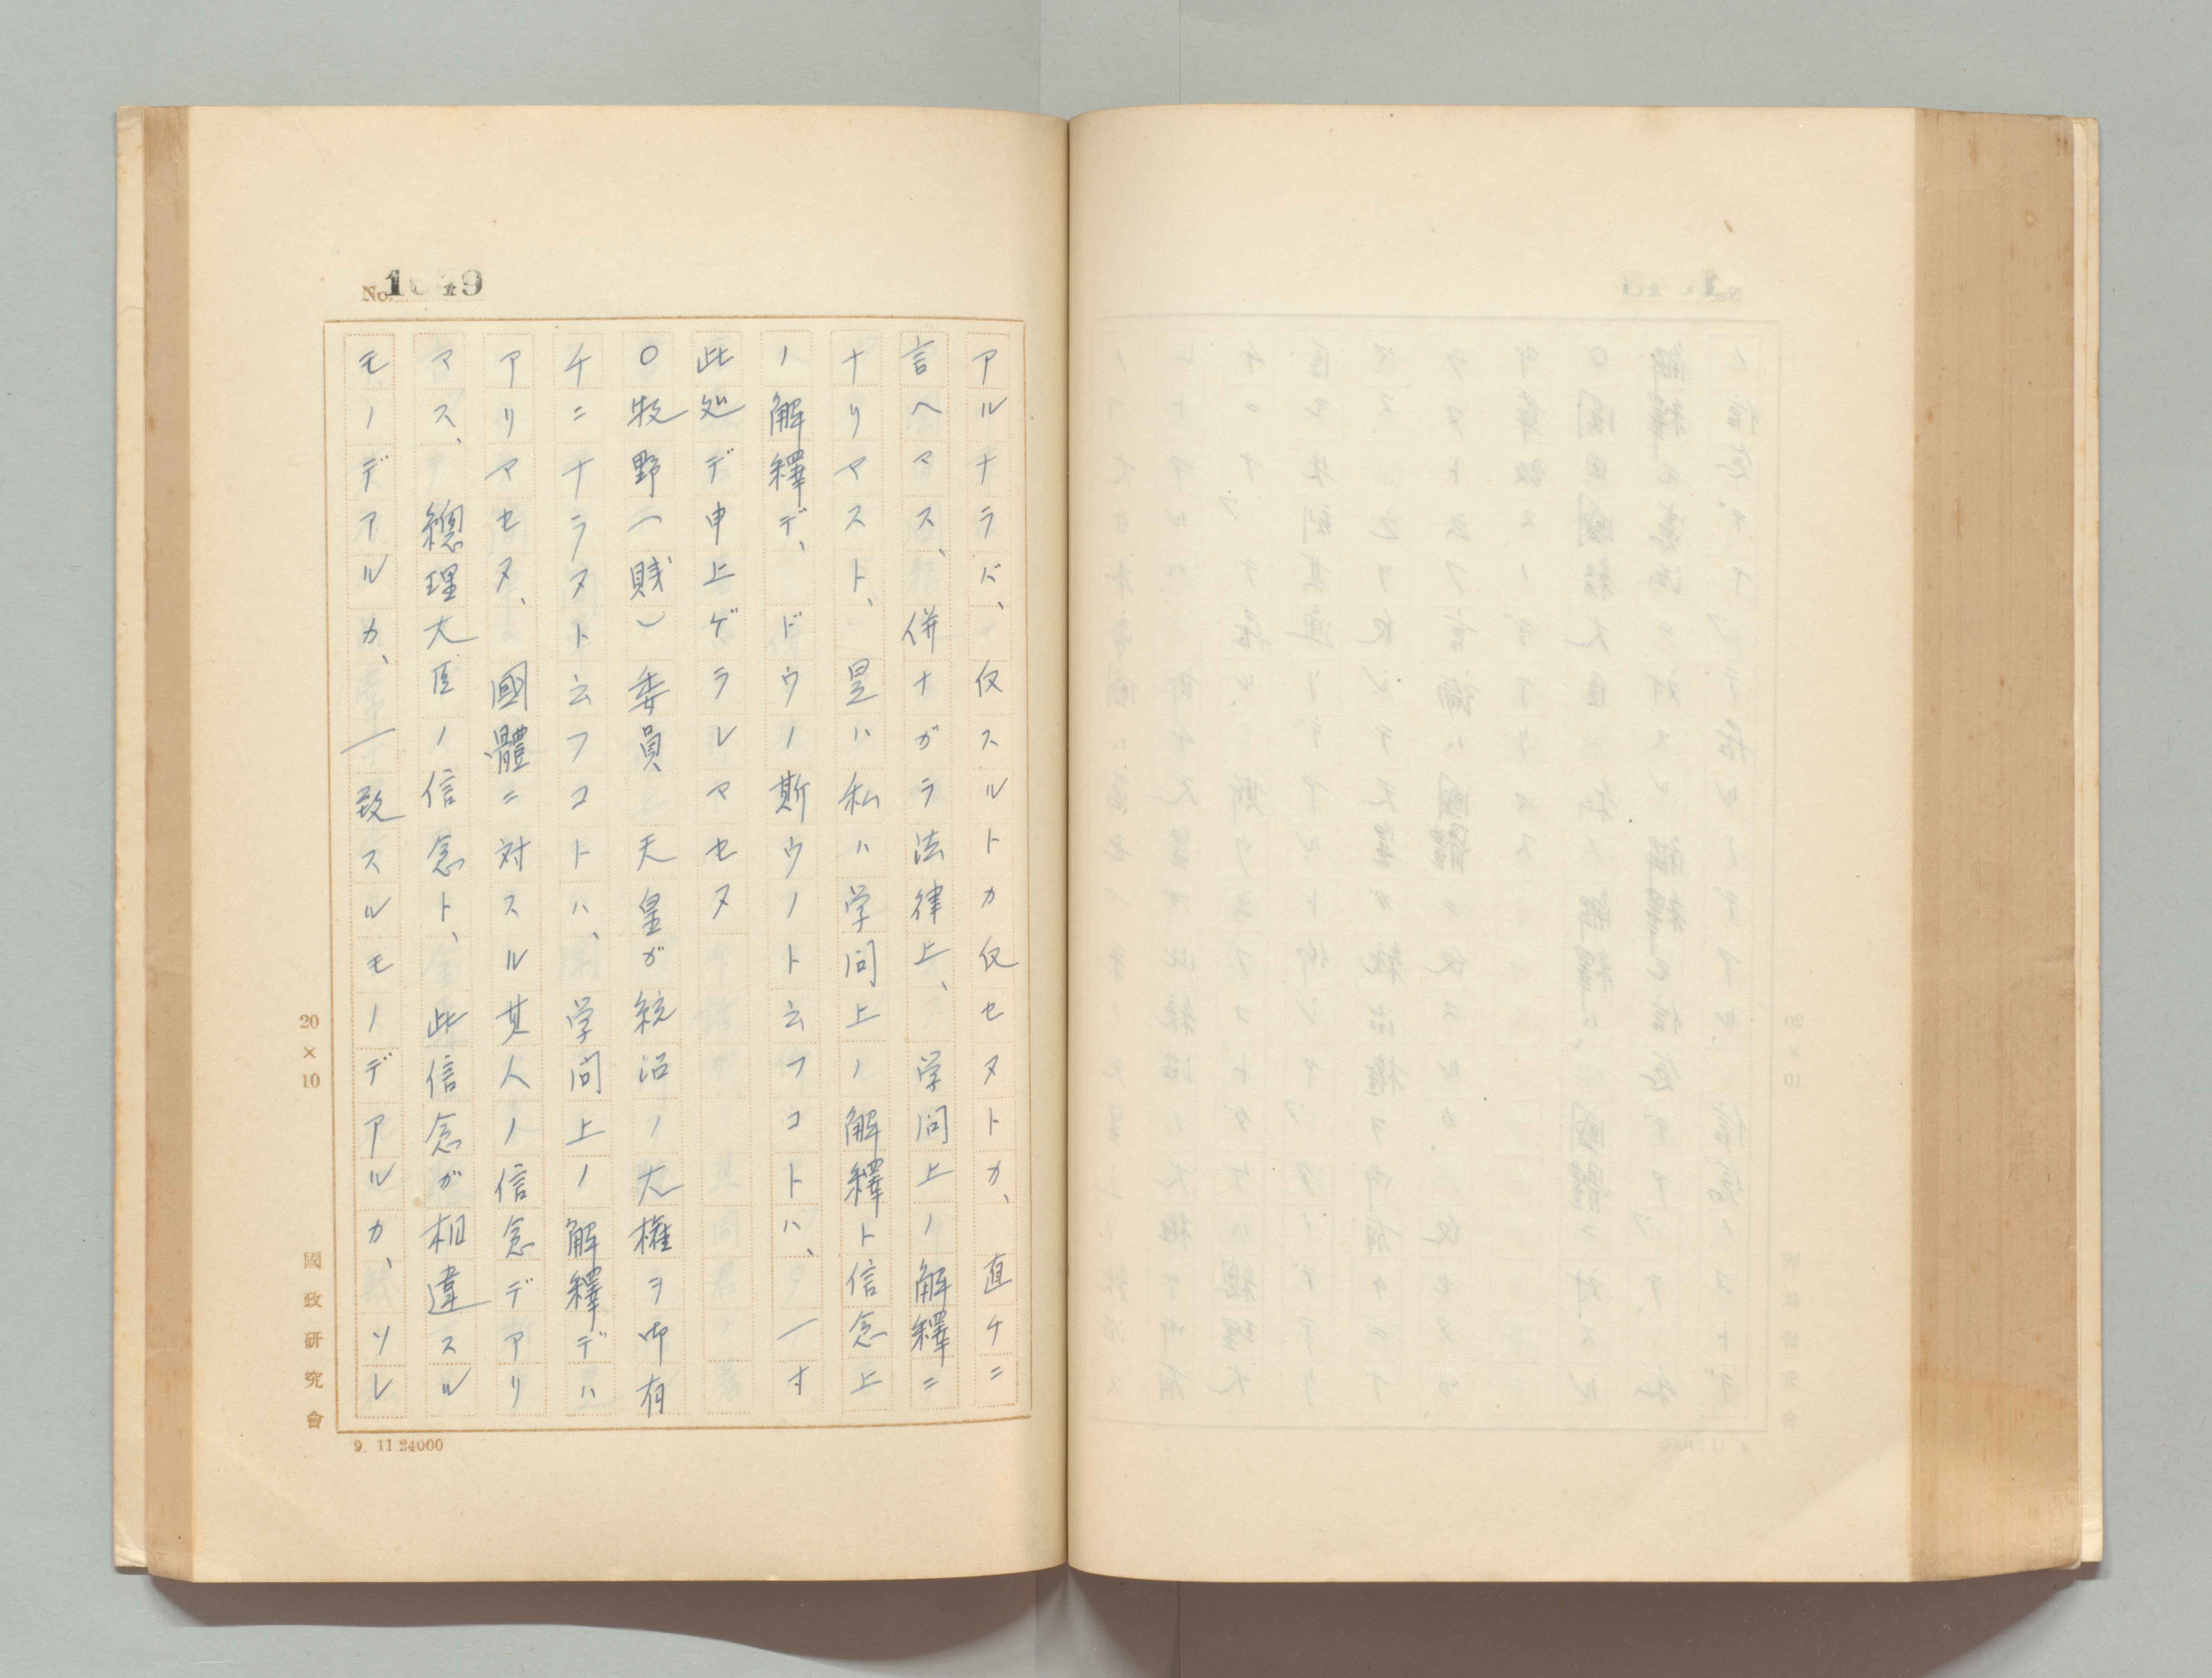 No. 1049
アルナラバ、仅スルトカ仅セヌトカ、直チニ
言ヘマス、併ナガラ法律上、学問上ノ解釋ニ
ナリマスト、是ハ私ハ学問上ノ解釋ト信念上
ノ解釋デ、ドウノ斯ウノト云フコトハ、一寸
此処デ申上ゲラレマセヌ
○牧野(賤)委員 天皇ガ統治ノ大権ヲ御有
チニナラヌト云フコトハ、学問上ノ解釋デハ
アリマセヌ、國體ニ対スル其人ノ信念デアリ
マス、總理大臣ノ信念ト、此信念ガ相違スル
モノデアルカ、一致スルモノデアルカ、ソレ
20×10
國政研究會
9. 11 24000